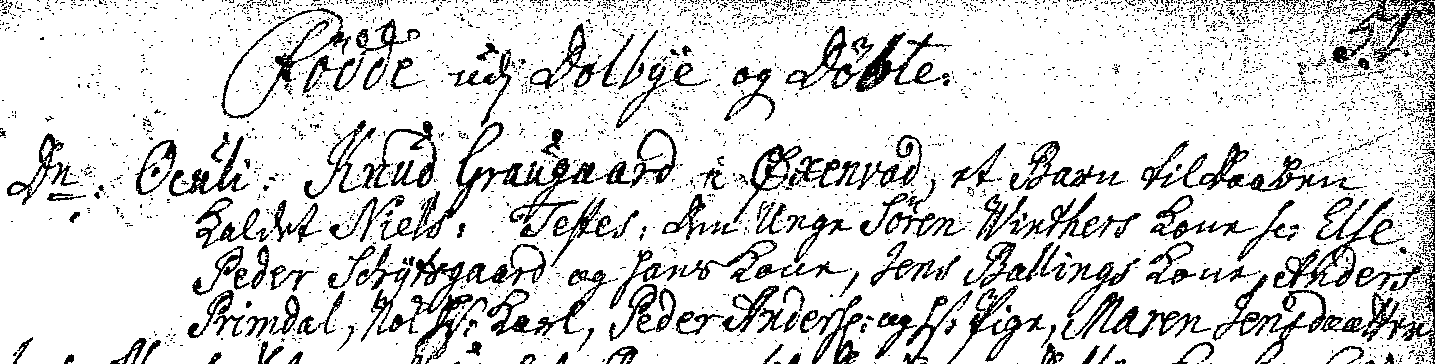 Födde udj Dolbÿe og Döbte.
Dn: Oculi. Knud Graugaard i Øxenvad, et Barn til Daaben
kaldet Niels: Testes, den Unge Sören Winthers Kone sc: Else
Peder Schÿtsgaard og hans Kone, Jens Ballings Kone, Anders
Primdal, Karl, Peder Anders: og Pige, Maren Jensdaatter